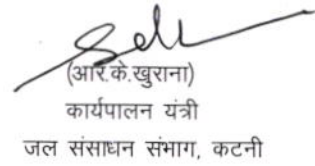 (आर.के.खुराना)
कार्यपालन यंत्री
जल संसाधन संभाग, कटनी